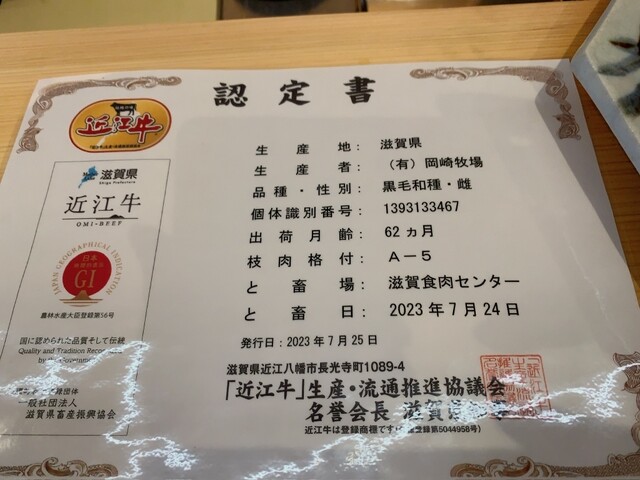 認定書
近江牛
滋賀県
Shiga Prefecture
近江牛
OMI-BEEF
JAPAN GEOGRAPHICAL INDICATION
日本
GI
農林水産大臣登録第56号
国に認められた品質そして伝統
Quality and Tradition Recognized
by the Government
一般社団法人
滋賀県畜産振興協会
生産地: 滋賀県
生産者: (有)岡崎牧場
品種・性別: 黒毛和種・雌
個体識別番号: 1393133467
出荷月齢: 62ヵ月
枝肉格付: A-5
と畜場: 滋賀食肉センター
と畜日: 2023年7月24日
発行日:2023年7月25日
滋賀県近江八幡市長光寺町1089-4
「近江牛」生産・流通推進協議会
名誉会長 滋賀
近江牛は登録商標です
登録第5044958号)